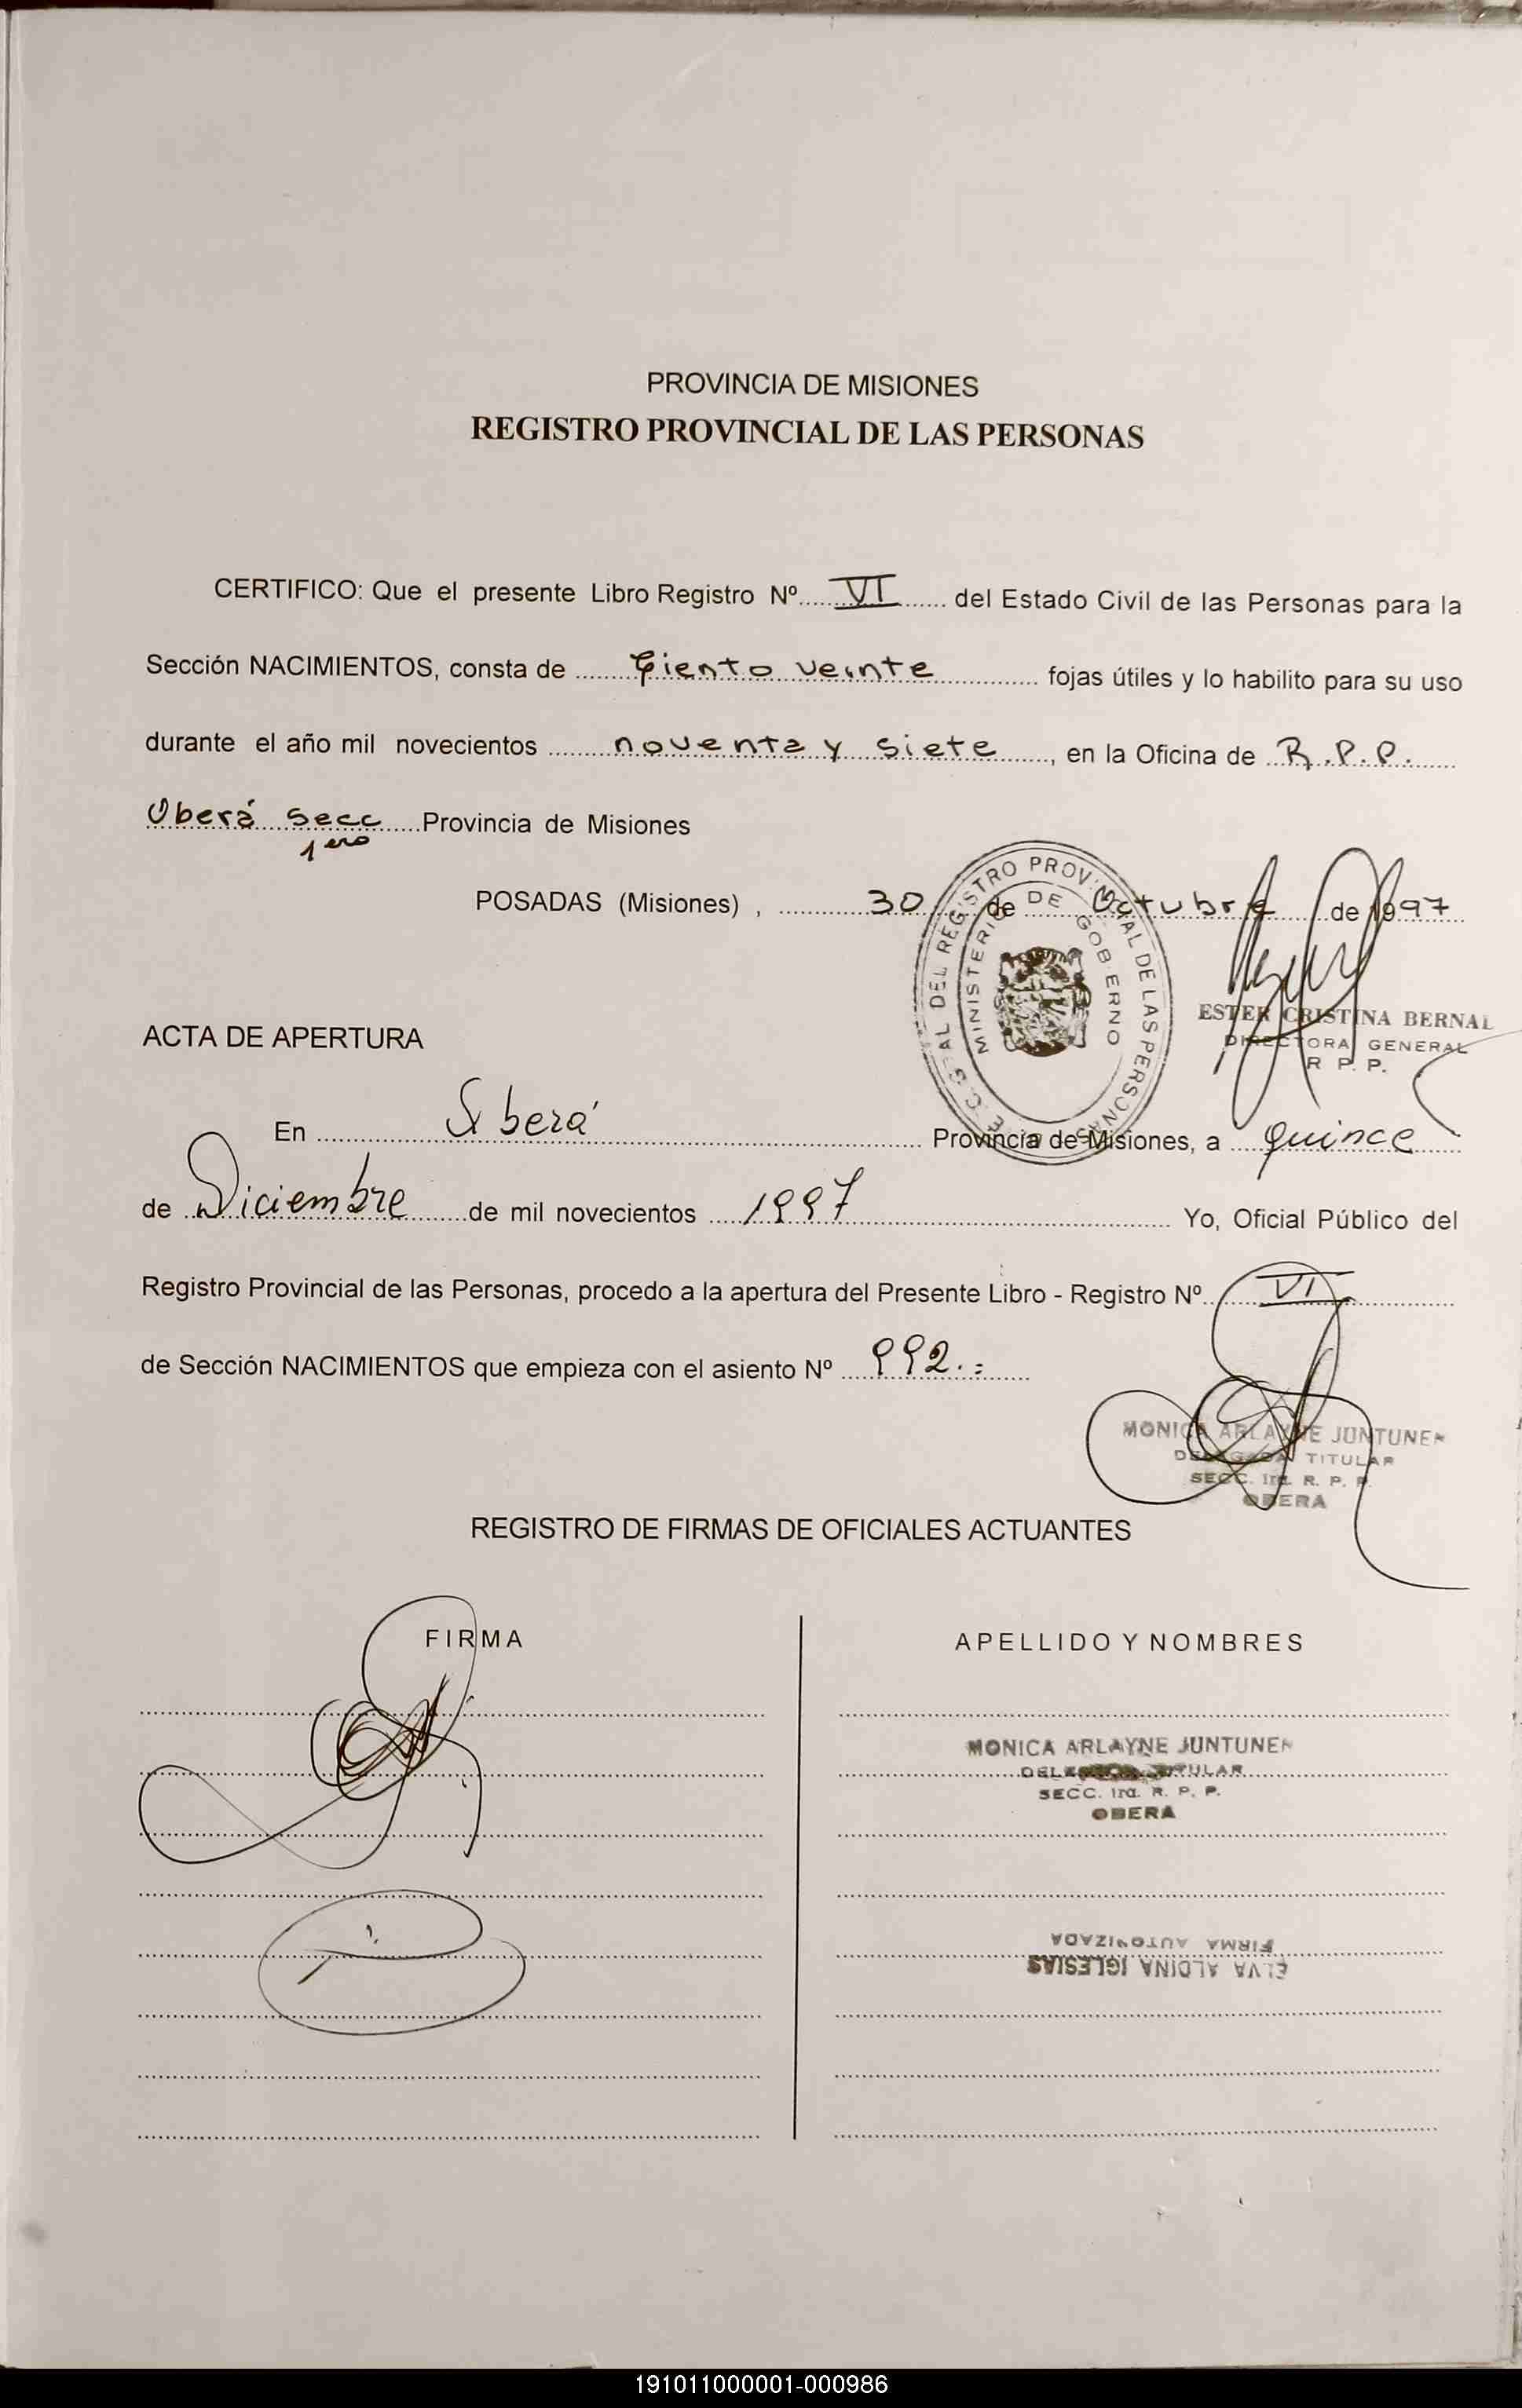 PROVINCIA DE MISIONES
REGISTRO PROVINCIAL DE LAS PERSONAS
CERTIFICO: Que el presente Libro Registro Nº VI del Estado Civil de las Personas para la
Sección NACIMIENTOS, consta de Ciento veinte fojas útiles y lo habilito para su uso
durante el año mil novecientos noventa y siete, en la Oficina de R.P.P.
Oberá Secc Provincia de Misiones
1era
POSADAS (Misiones) , 30 de Octubre de 1997
MINISTERIO DE GOBIERNO
ESTER CRISTINA BERNAL
DIRECTORA GENERAL
R P. P.
ACTA DE APERTURA
En Oberá Provincia de Misiones, a quince
de Diciembre de mil novecientos 1997 Yo, Oficial Público del
Registro Provincial de las Personas, procedo a la apertura del Presente Libro - Registro Nº VI
de Sección NACIMIENTOS que empieza con el asiento Nº 992.-
MONICA ARLAYNE JUNTUNEN
DELEGADA TITULAR
SECC. 1ra. R. P. P.
OBERA
REGISTRO DE FIRMAS DE OFICIALES ACTUANTES
FIRMA APELLIDO Y NOMBRES
MONICA ARLAYNE JUNTUNEN
DELEGADA TITULAR
SECC. 1ra. R. P. P.
OBERA
ELVA ALDINA IGLESIAS
FIRMA AUTORIZADA
191011000001-000986